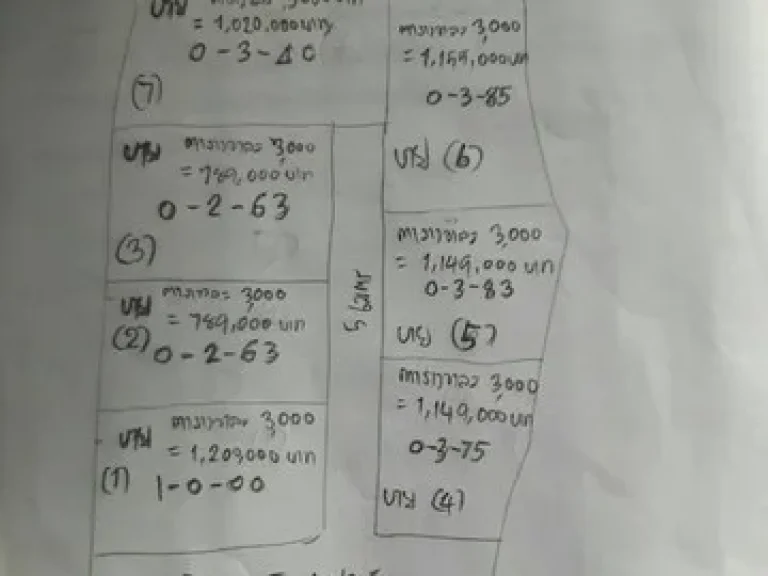 ขาย
= 1,020,000 บาท
0-3-40
(7)
ตารางวาละ 3,000
= 1,155,000 บาท
0-3-85
ขาย (6)
ขาย ตารางวาละ 3,000
= 789,000 บาท
0-2-63
(3)
ตารางวาละ 3,000
= 1,149,000 บาท
0-3-83
ขาย (5)
ขาย ตารางวาละ 3,000
= 789,000 บาท
(2) 0-2-63
5 เมตร
ตารางวาละ 3,000
= 1,149,000 บาท
0-3-75
ขาย (4)
ขาย ตารางวาละ 3,000
= 1,209,000 บาท
(1) 1-0-00